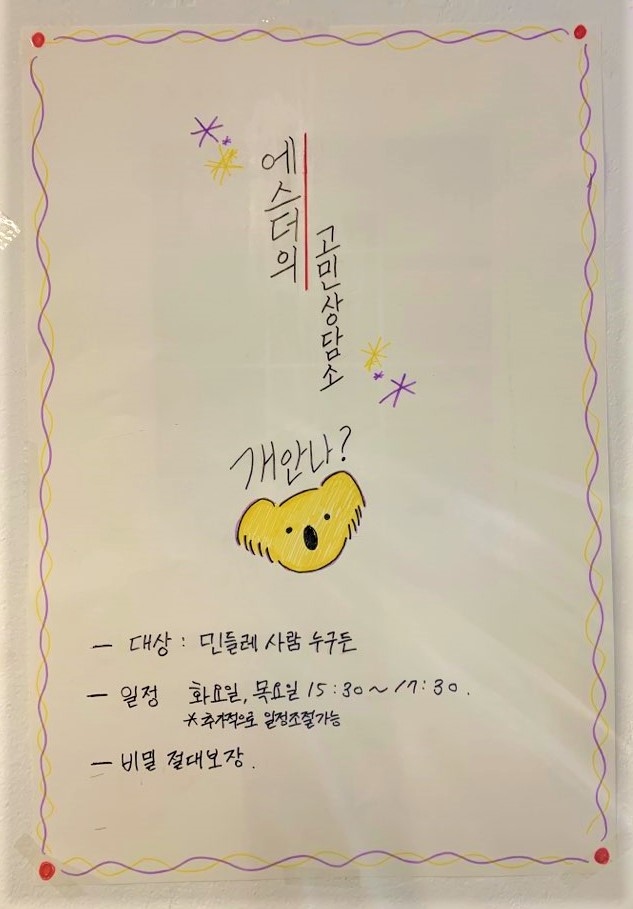 에스더의
고민상담소
개안나?
— 대상 : 민들레 사람 누구든
— 일정 화요일, 목요일 15:30~17:30.
* 추가적으로 일정조절가능
— 비밀 절대보장.